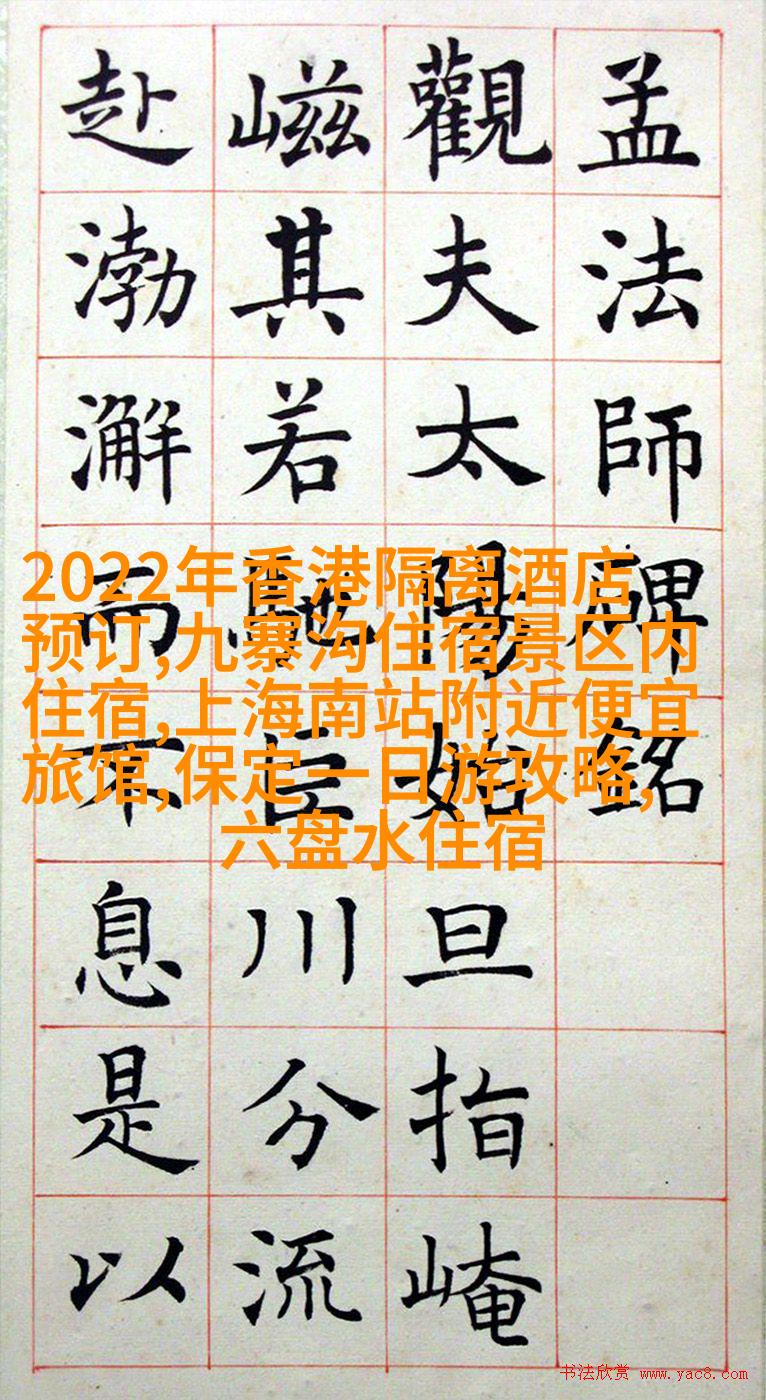 孟法師碑銘
觀夫太陽始旦指崦
嵫其若馳巨川分流
赴渤澥而不息是以
2022年香港隔离酒店
预订,九寨沟住宿景区内
住宿,上海南站附近便宜
旅馆,保定一日游攻略,
六盘水住宿
书法欣赏 www.yac8.com